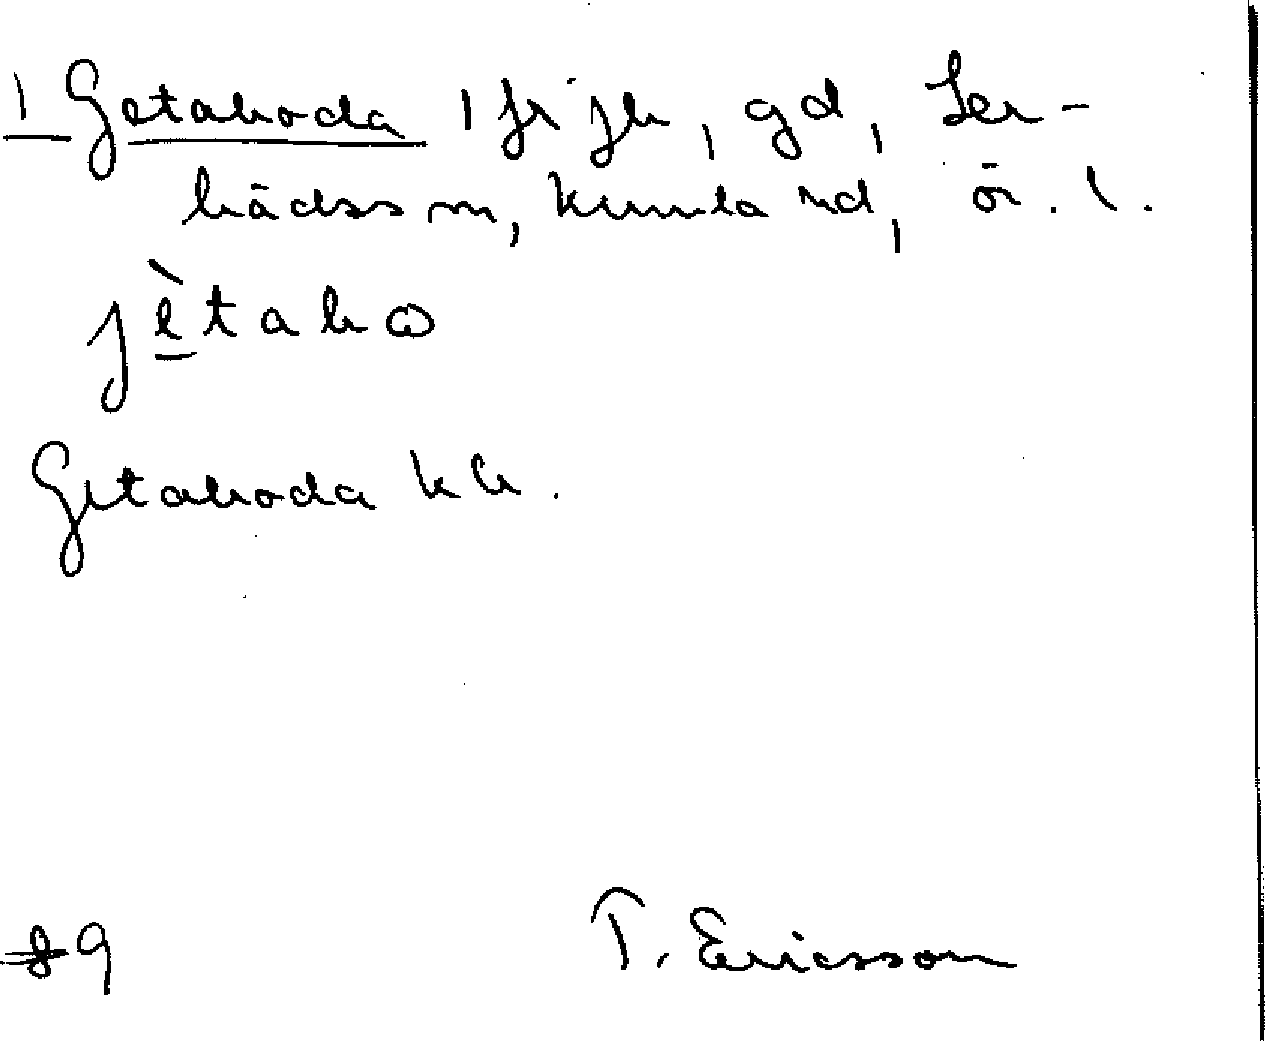 1 Getaboda 1 fr jb, gd, Ler-
bäcks sn, Kumla hd, Ör. l.
jètabo
Getaboda
9 T. Ericsson